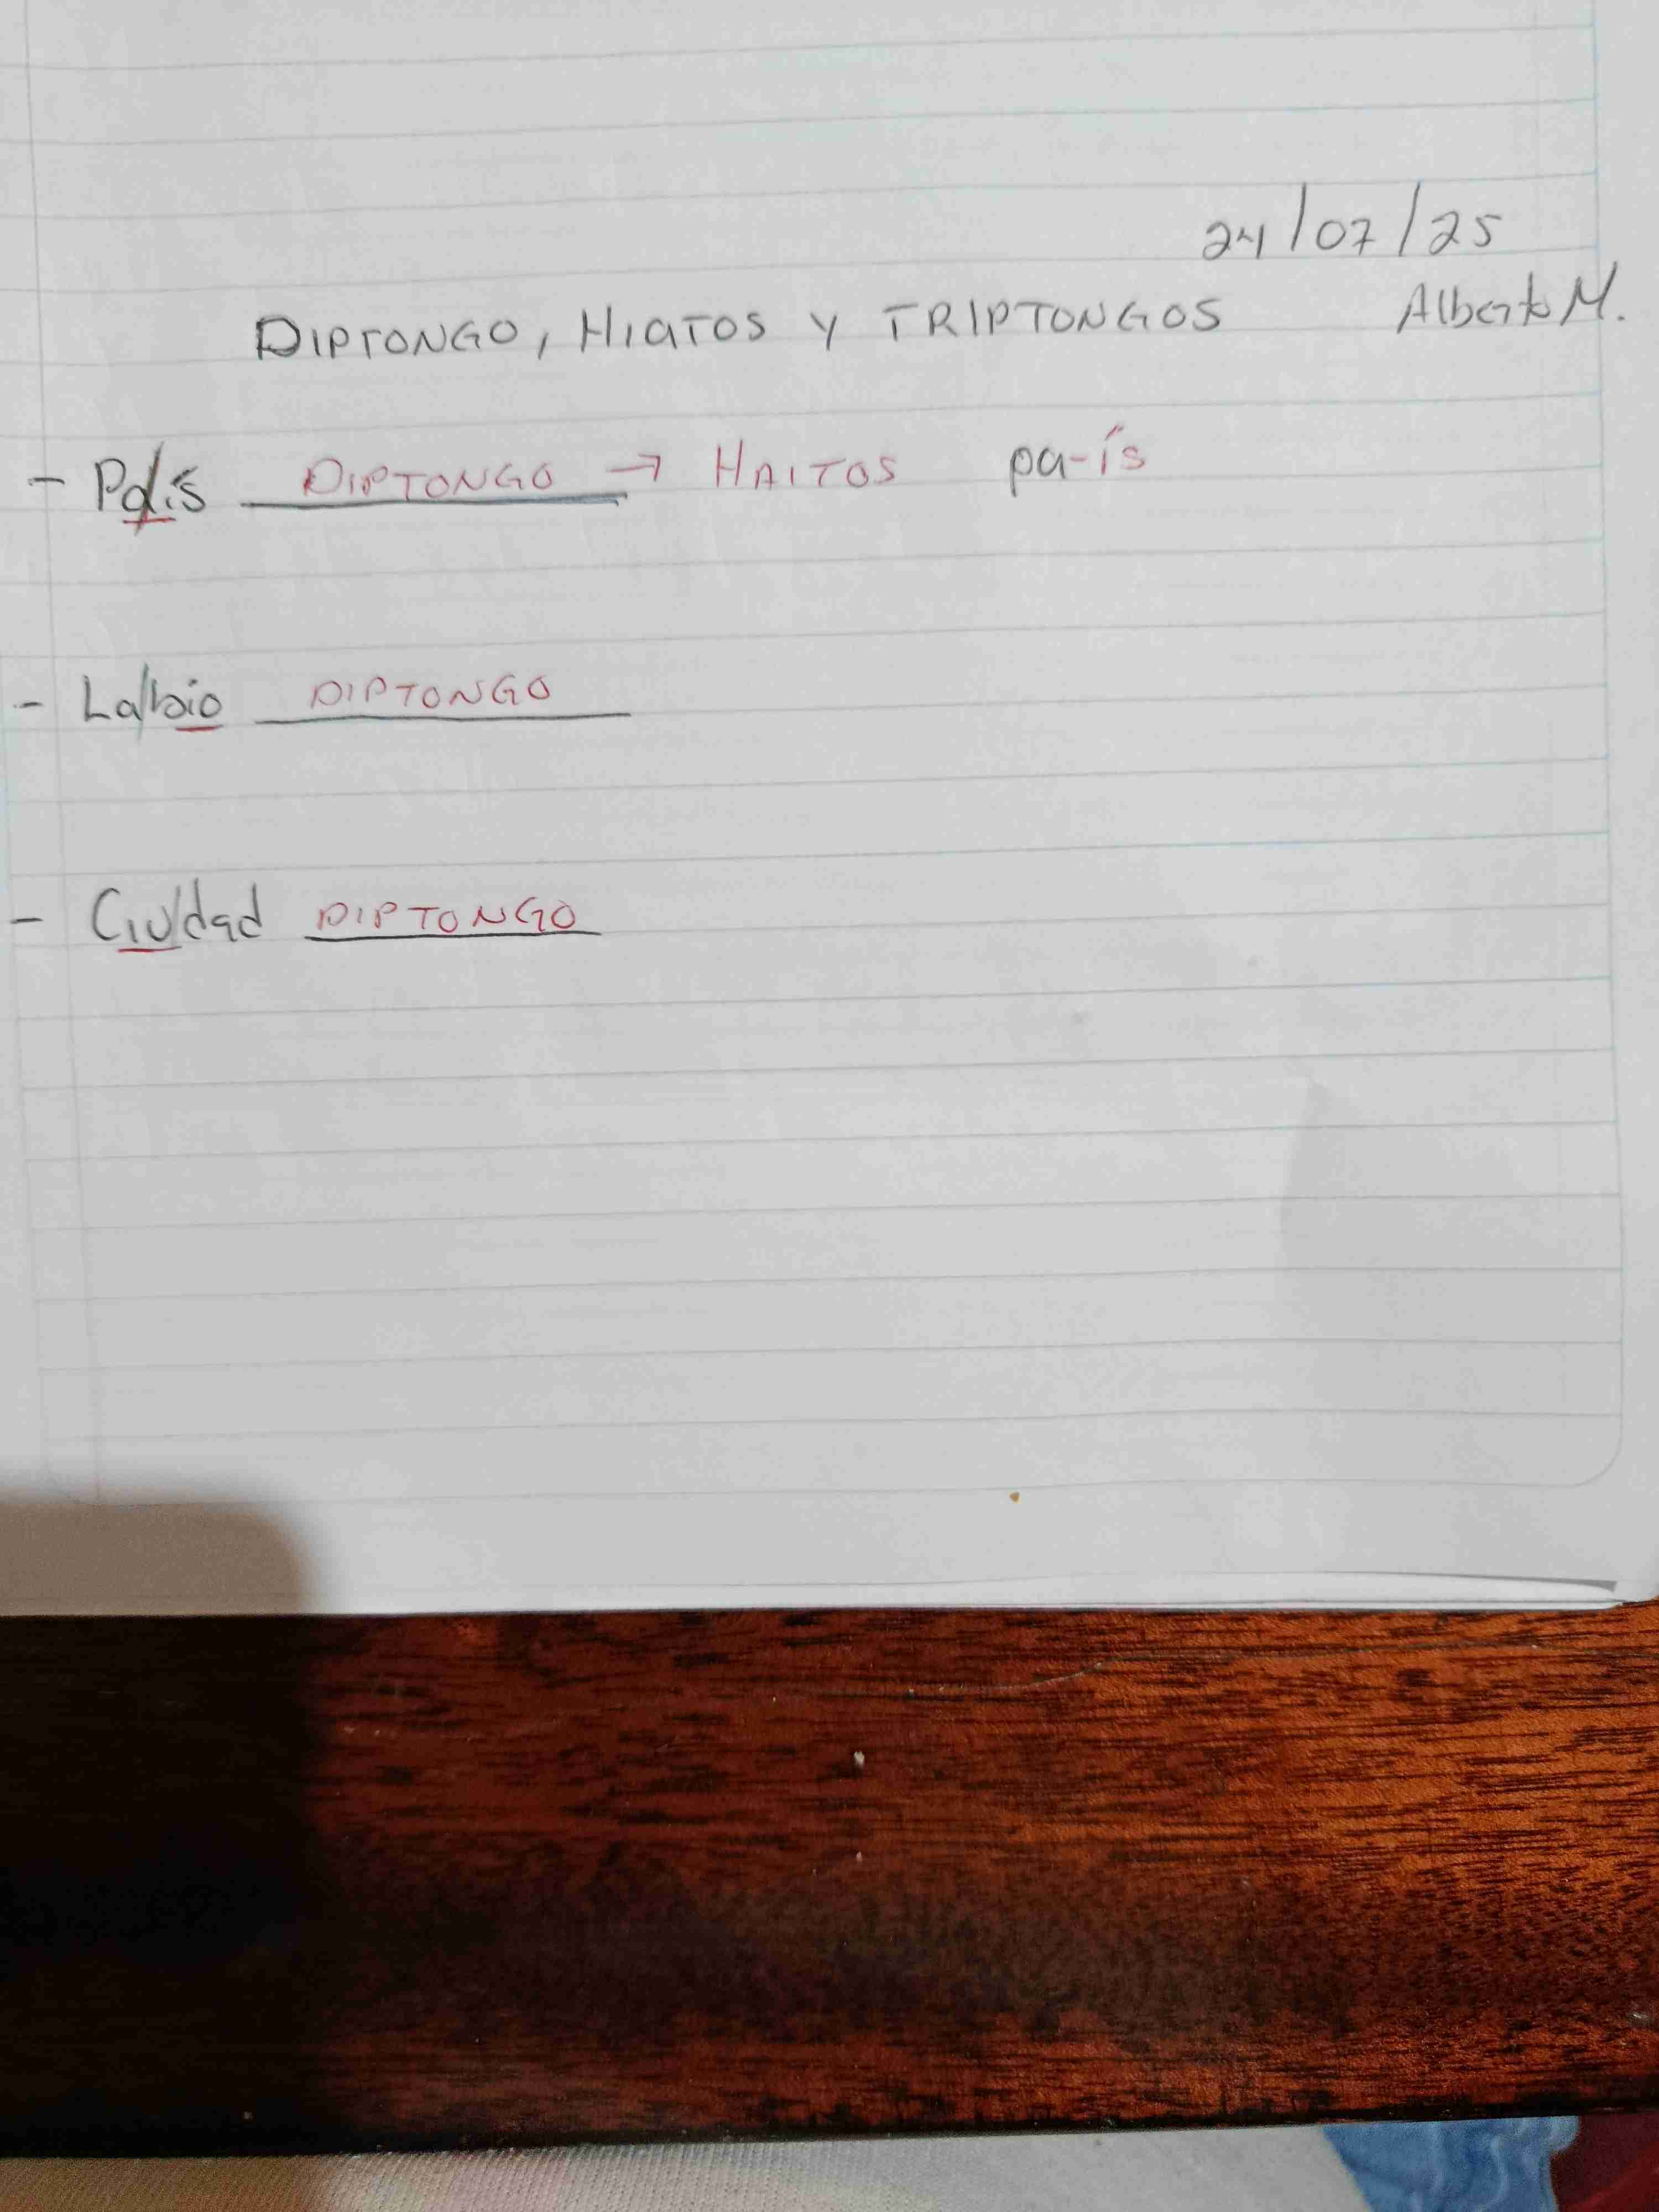 24/07/25
DIPTONGO, HIATOS Y TRIPTONGOS Alberto M.
- Pa/ís DIPTONGO → HAITOS pa-ís
- La/bio DIPTONGO
- Ciu/dad DIPTONGO